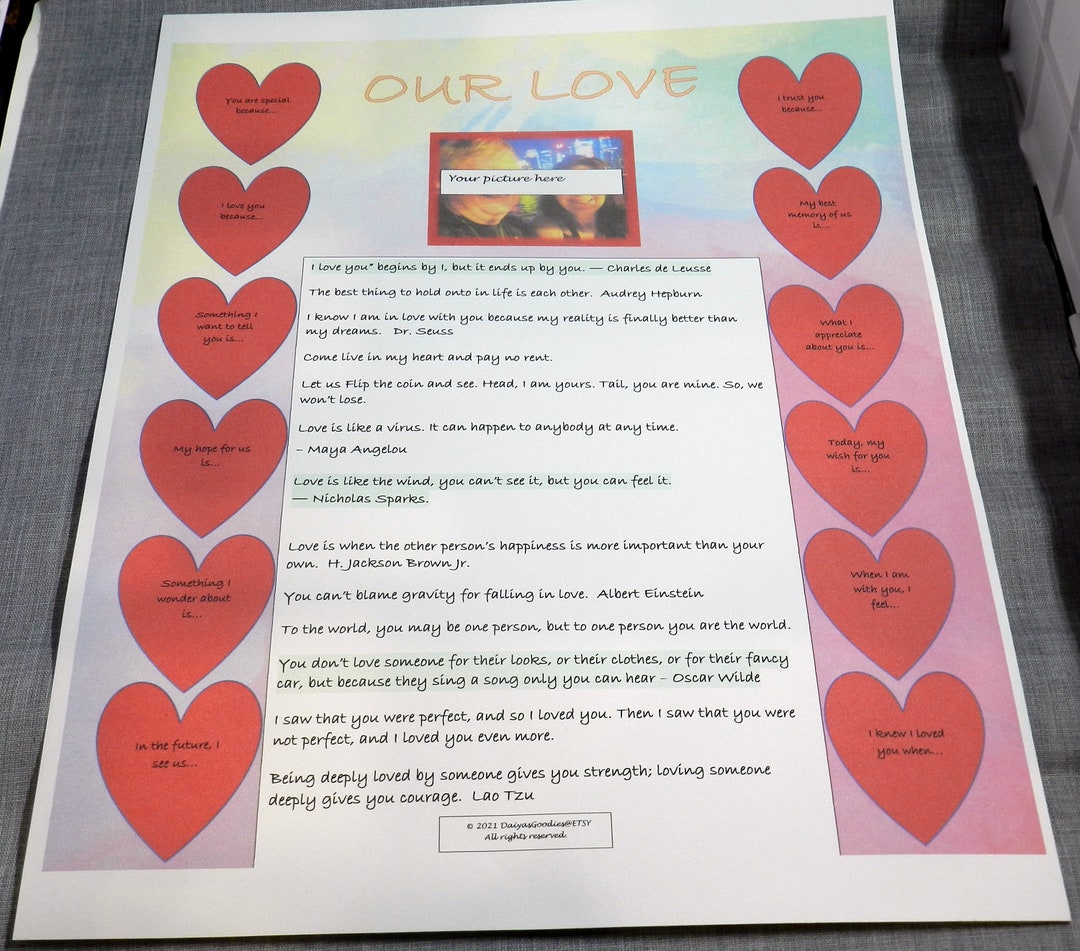 OUR LOVE
You are special
because...
I love you
because...
Something I
want to tell
you is...
My hope for us
is...
Something I
wonder about
is...
In the future, I
see us...
Your picture here
I love you" begins by I, but it ends up by you. — Charles de Leusse
The best thing to hold onto in life is each other. Audrey Hepburn
I know I am in love with you because my reality is finally better than
my dreams. Dr. Seuss
Come live in my heart and pay no rent.
Let us Flip the coin and see. Head, I am yours. Tail, you are mine. So, we
won't lose.
Love is like a virus. It can happen to anybody at any time.
– Maya Angelou
Love is like the wind, you can't see it, but you can feel it.
— Nicholas Sparks.
Love is when the other person's happiness is more important than your
own. H. Jackson Brown Jr.
You can't blame gravity for falling in love. Albert Einstein
To the world, you may be one person, but to one person you are the world.
You don't love someone for their looks, or their clothes, or for their fancy
car, but because they sing a song only you can hear – Oscar Wilde
I saw that you were perfect, and so I loved you. Then I saw that you were
not perfect, and I loved you even more.
Being deeply loved by someone gives you strength; loving someone
deeply gives you courage. Lao Tzu
© 2021 DaiyasGoodies@ETSY
All rights reserved.
I trust you
because...
My best
memory of us
is...
What I
appreciate
about you is...
Today, my
wish for you
is...
When I am
with you, I
feel...
I knew I loved
you when...